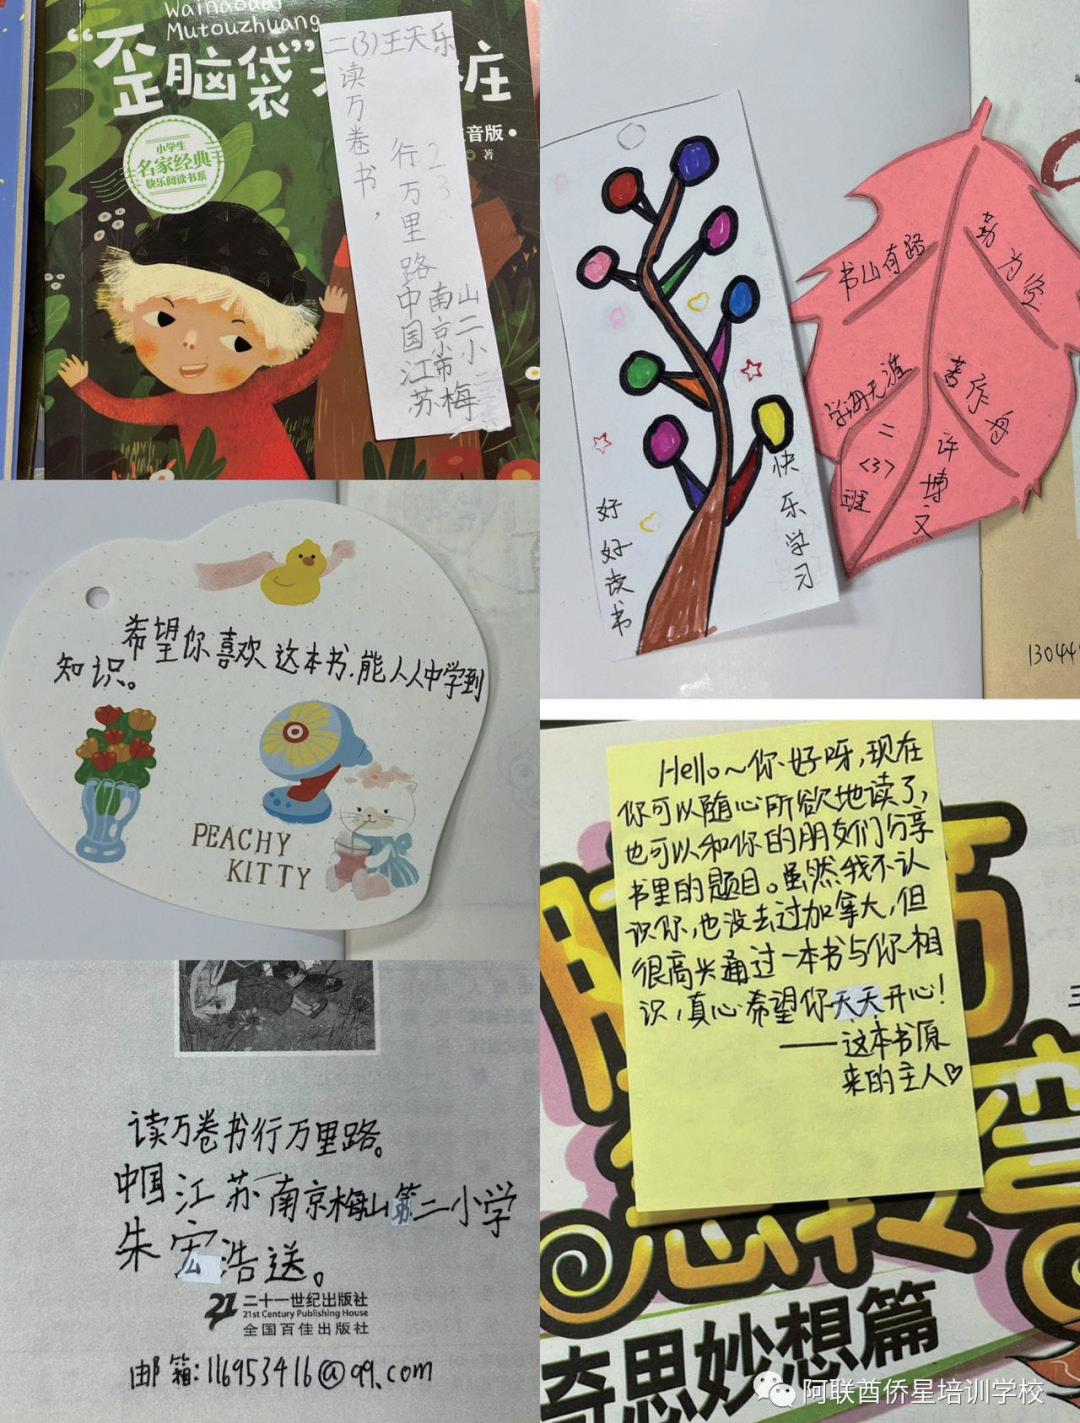 Wainaodai
Mutouzhuang
“歪脑袋”
桩
音版
著
小学生
名家经典
快乐阅读书系
二(3)王天乐
读万卷书，
行万里路
23.
中国江苏
南京市梅
山二小
好好读书
快乐学习
书山有路
勤为径
学海无涯
二
<3>
班
许博文
130449
希望你喜欢这本书.能人人中学到
知识。
PEACHY
KITTY
Hello～你好呀,现在
你可以随心所欲地读了,
也可以和你的朋友们分享
书里的题目。虽然我不认
识你,也没去过加拿大,但
很高兴通过一本书与你相
识,真心希望你天天开心!
——这本书原
来的主人♡
读万卷书行万里路。
中国江苏南京梅山第二小学
朱宏浩送。
21 二十一世纪出版社
21st Century Publishing House
全国百佳出版社
邮箱:116953416@qq.com
脑筋
急转弯
奇思妙想篇
阿联酋侨星培训学校